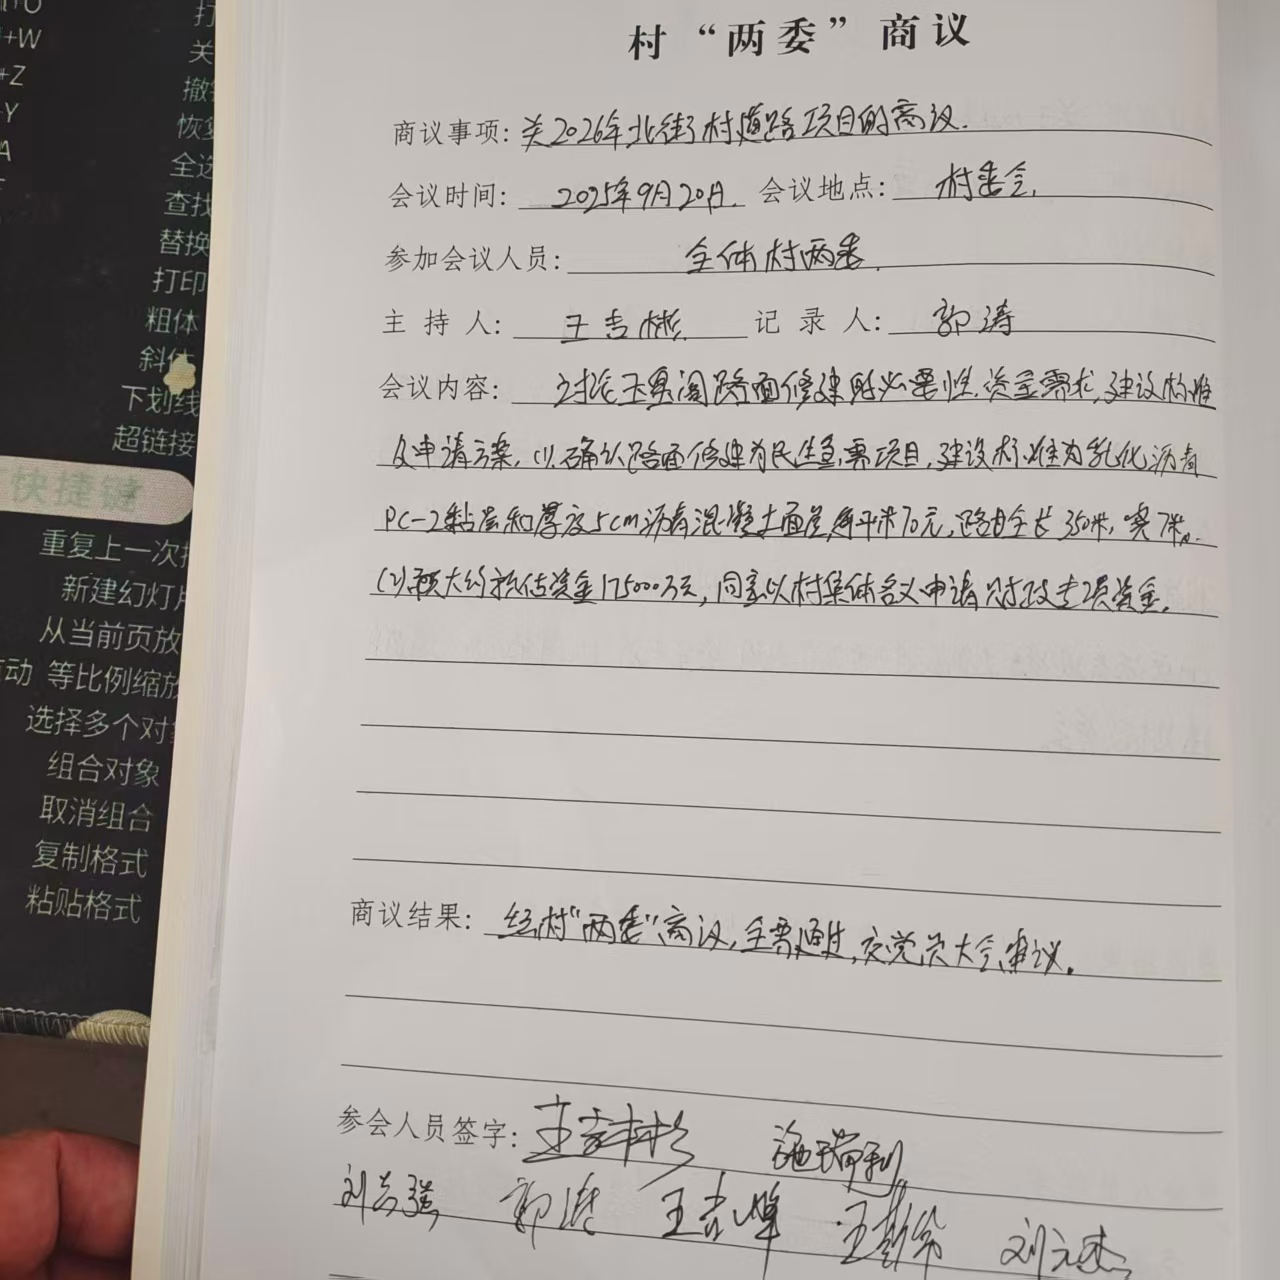 村“两委”商议
商议事项: 关2026年北街村道路项目的商议.
会议时间: 2025年9月20日. 会议地点: 村委会.
参加会议人员: 全体村两委.
主持人: 王吉彬. 记录人: 郭涛
会议内容: 讨论玉皇阁路面修建的必要性.资金需求,建设标准
及申请方案. (1).确认路面修建为民生急需项目,建设标准为乳化沥青
PC-2黏层和厚度5cm沥青混凝土面层,每平米70元,路由全长350米,宽7米.
(2)预大约预估资金175000万元,同意以村集体名义申请财政专项资金.
商议结果: 经村“两委”商议,全票通过,交党员大会审议.
参会人员签字: 王吉彬 施瑞利
刘志强 郭涛 王吉峰 刘元杰
打
关
撤
恢复
全选
查找
替换
打印
粗体
斜体
下划线
超链接
快捷键
重复上一次
新建幻灯片
从当前页放
动 等比例缩放
选择多个对象
组合对象
取消组合
复制格式
粘贴格式
+W
+Z
Y
A